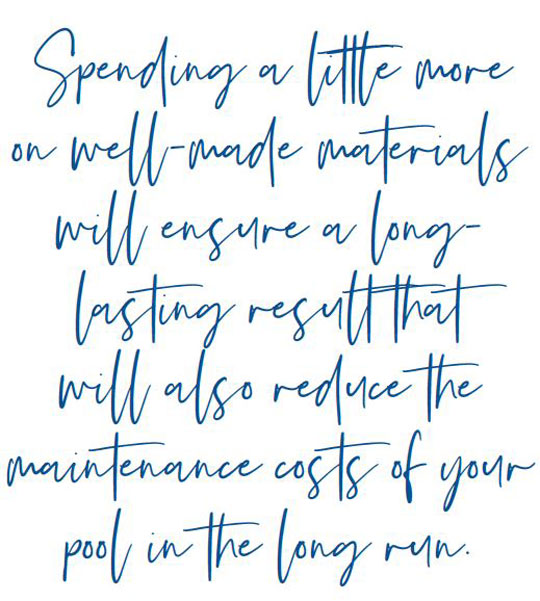 Spending a little more
on well-made materials
will ensure a long-
lasting result that
will also reduce the
maintenance costs of your
pool in the long run.